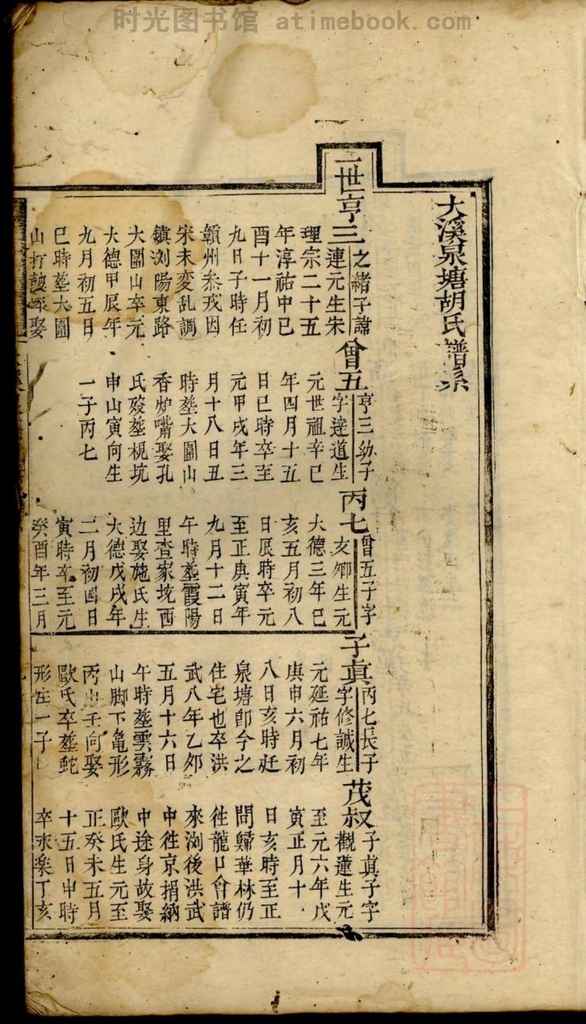 时光图书馆 atimebook.com
大溪泉塘胡氏譜系
一世亨三
之緒子諱
連元生宋
理宗二十五
年淳祐中巳
酉十一月初
九日子時任
贛州叅戎因
宋末変乱調
鎮浏陽東路
大圍山卒元
大德甲辰年
九月初五日
巳時塟大圍
山打鼓娶
會五
亨三幼子
字達道生
元世祖辛巳
年四月十五
日巳時卒至
元甲戌年三
月十八日丑
時塟大圍山
香炉嘴娶孔
氏殁塟枧坑
申山寅向生
一子丙七
丙七
曾五子字
友卿生元
大德三年巳
亥五月初八
日辰時卒元
至正庚寅年
九月十二日
午時塟霞陽
里查家坑西
边娶施氏生
大德戊戌年
二月初四日
寅時卒至元
癸酉年三月
子真
丙七長子
字修誠生
元延祐七年
庚申六月初
八日亥時迁
泉塘即今之
住宅也卒洪
武八年乙夘
五月十六日
午時塟雲霧
山脚下龜形
丙山壬向娶
歐氏卒塟蛇
形庄一子
茂叔
子真子字
觀蓮生元
至元六年戊
寅正月十
日亥時至正
間歸華林仍
徃龍口會譜
來浏後洪武
中徃京捐納
中途身故娶
歐氏生元至
正癸未五月
十五日申時
卒永楽丁亥